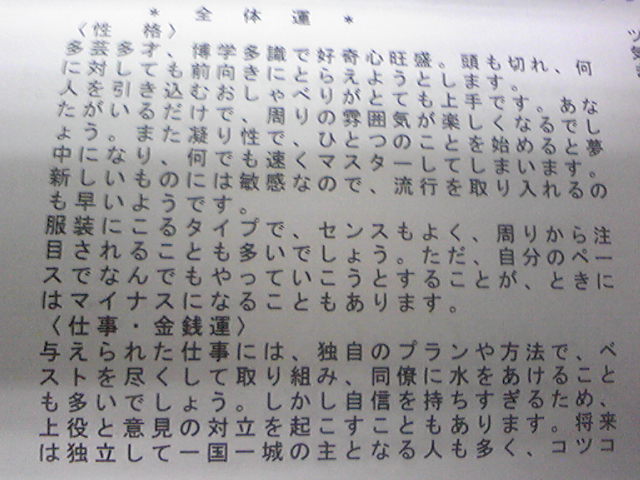 * 全体運 *
〈性格〉
多芸多才、博学多識で好奇心旺盛。頭も切れ、何
に対しても前向きにとらえようとします。
人を引き込むおしゃべりがとても上手です。あな
たがいるだけで、周りの雰囲気が楽しくなるでし
ょう。また凝り性で、ひとつのことを始めると夢
中になり、何でも速くマスターしてしまいます。
新しいものには敏感なので、流行を取り入れるの
も早いようです。
服装にこるタイプで、センスもよく、周りから注
目されることも多いでしょう。ただ、自分のペー
スでなんでもやっていこうとすることが、ときに
はマイナスになることもあります。
〈仕事・金銭運〉
与えられた仕事には、独自のプランや方法で、ベ
ストを尽くして取り組み、同僚に水をあけること
も多いでしょう。しかし自信を持ちすぎるため、
上役と意見の対立を起こすこともあります。将来
は独立して一国一城の主となる人も多く、コツコ